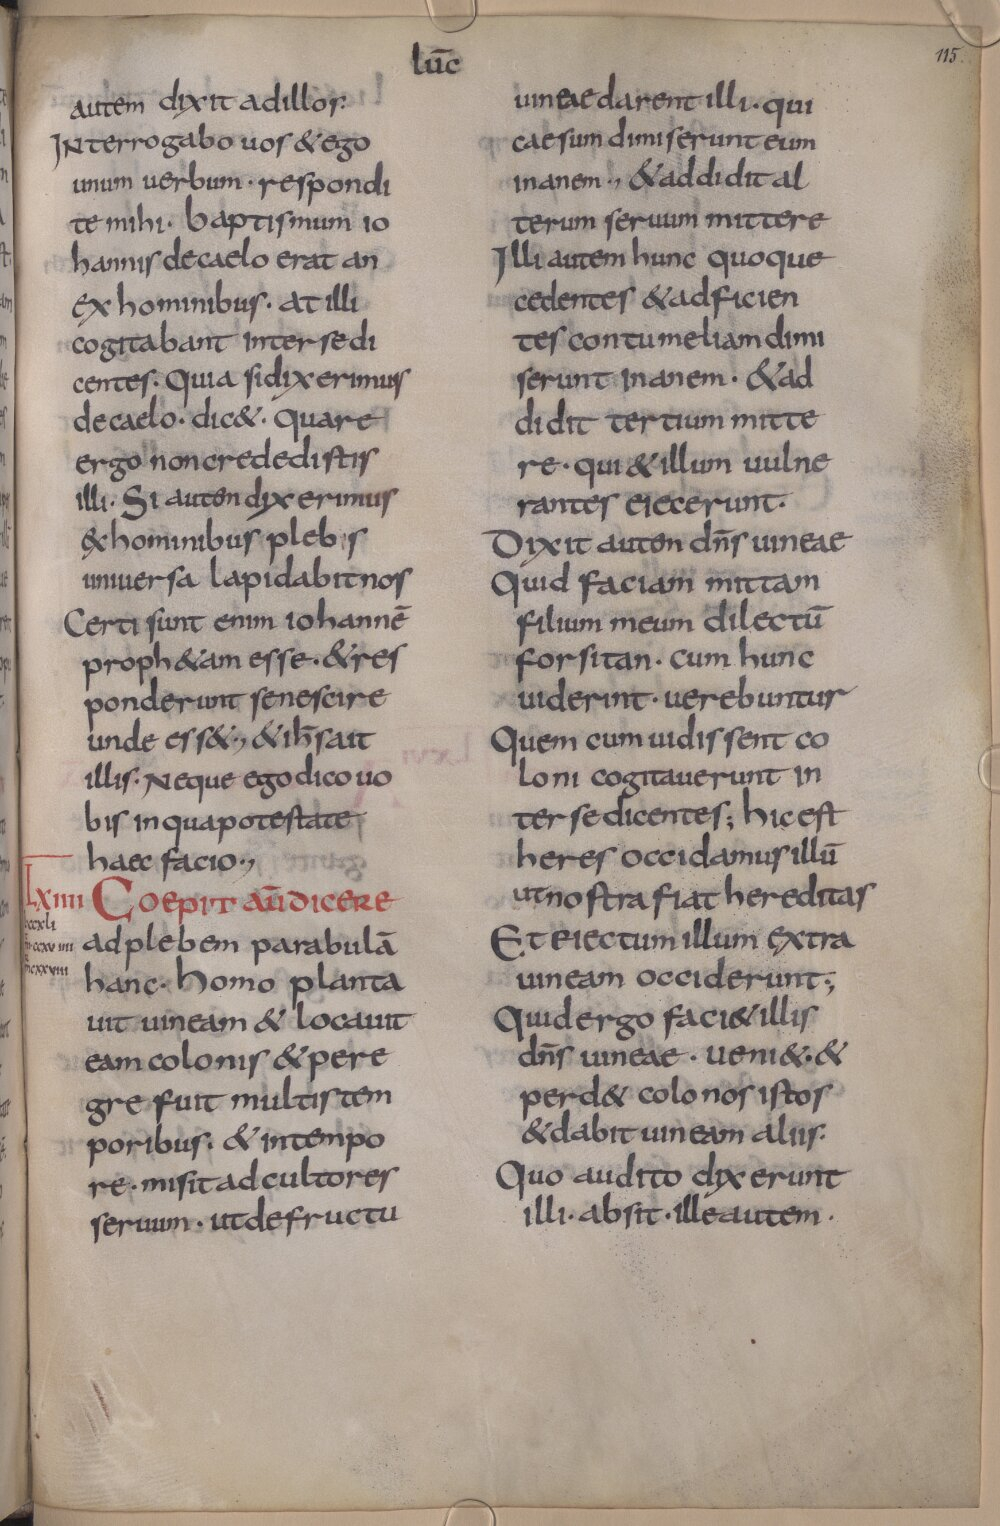 luc̄
115.
autem dixit ad illos.
Interrogabo uos & ego
unum uerbum · respondi
te mihi · baptismum io
hannis de caelo erat an
ex hominibus · at illi
cogitabant inter se di
centes · Quia si dixerimus
de caelo · dic& · Quare
ergo non crededistis
illi · Si autem dixerimus
ex hominibus plebis
uniuersa lapidabit nos
Certi sunt enim iohannē
proph&am esse · & res
ponderunt se nescire
unde ess&, & ih̄s ait
illis · Neque ego dico uo
bis in qua potestate
haec facio,
Lxiiii Coepit aū dicere
ad plebem parabulā
hanc · homo planta
uit uineam & locauit
eam colonis & pere
gre fuit multis tem
poribus · & in tempo
re · misit ad cultores
seruum · ut de fructu
uineae darent illi · qui
caesum dimiserunt eum
inanem, & addidit al
terum seruum mittere
Illi autem hunc quoque
cedentes & adficien
tes contumeliam dimi
serunt inanem · & ad
didit tertium mitte
re · qui & illum uulne
rantes eiecerunt.
Dixit autem dn̄s uineae
Quid faciam mittam
filium meum dilectū
forsitan · cum hunc
uiderint · uerebuntur
Quem cum uidissent co
loni cogitauerunt in
ter se dicentes; hic est
heres occidamus illū
ut nostra fiat hereditas
Et eiectum illum extra
uineam occiderunt;
Quid ergo faci& illis
dn̄s uineae · ueni& · &
perd& colonos istos
& dabit uineam aliis.
Quo audito dixerunt
illi · absit · ille autem ·